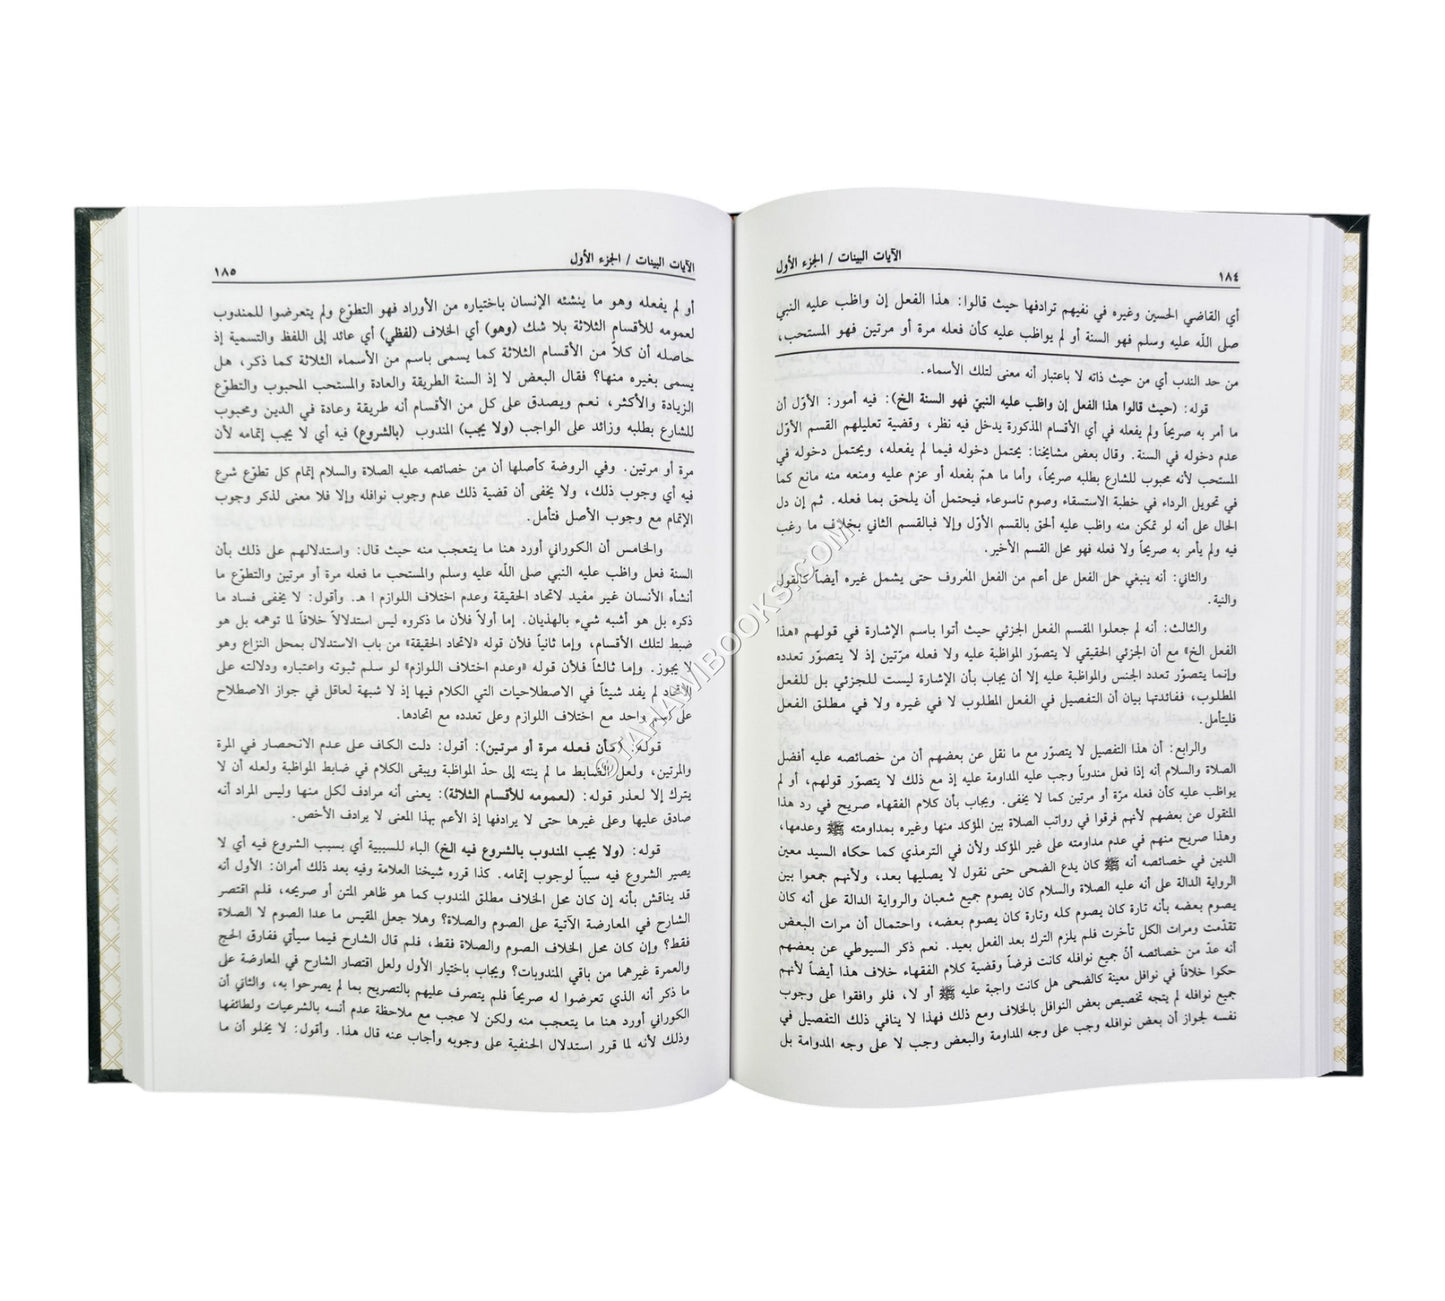 ١٨٤
الآيات البينات / الجزء الأول
أي القاضي الحسين وغيره في نفيهم ترادفها حيث قالوا: هذا الفعل إن واظب عليه النبي
صلى اللّه عليه وسلم فهو السنة أو لم يواظب عليه كأن فعله مرة أو مرتين فهو المستحب،
من حد الندب أي من حيث ذاته لا باعتبار أنه معنى لتلك الأسماء.
قوله: (حيث قالوا هذا الفعل إن واظب عليه النبيّ فهو السنة الخ): فيه أمور: الأوّل أن
ما أمر به صريحاً ولم يفعله في أي الأقسام المذكورة يدخل فيه نظر، وقضية تعليلهم القسم الأوّل
عدم دخوله في السنة. وقال بعض مشايخنا: يحتمل دخوله فيما لم يفعله، ويحتمل دخوله في
المستحب لأنه محبوب للشارع بطلبه صريحاً، وأما ما همّ بفعله أو عزم عليه ومنعه منه مانع كما
في تحويل الرداء في خطبة الاستسقاء وصوم تاسوعاء فيحتمل أن يلحق بما فعله. ثم إن دل
الحال على أنه لو تمكن منه واظب عليه ألحق بالقسم الأوّل وإلا فبالقسم الثاني بخلاف ما رغب
فيه ولم يأمر به صريحاً ولا فعله فهو محل القسم الأخير.
والثاني: أنه ينبغي حمل الفعل على أعم من الفعل المعروف حتى يشمل غيره أيضاً كالقول
والنية.
والثالث: أنه لم جعلوا المقسم الفعل الجزئي حيث أتوا باسم الإشارة في قولهم «هذا
الفعل الخ» مع أن الجزئي الحقيقي لا يتصوّر المواظبة عليه ولا فعله مرّتين إذ لا يتصوّر تعدده
وإنما يتصوّر تعدد الجنس والمواظبة عليه إلا أن يجاب بأن الإشارة ليست للجزئي بل للفعل
المطلوب، ففائدتها بيان أن التفصيل في الفعل المطلوب لا في غيره ولا في مطلق الفعل
فليتأمل.
والرابع: أن هذا التفصيل لا يتصوّر مع ما نقل عن بعضهم أن من خصائصه عليه أفضل
الصلاة والسلام أنه إذا فعل مندوباً وجب عليه المداومة عليه إذ مع ذلك لا يتصوّر قولهم، أو لم
يواظب عليه كأن فعله مرّة أو مرتين كما لا يخفى. ويجاب بأن كلام الفقهاء صريح في رد هذا
المنقول عن بعضهم لأنهم فرقوا في رواتب الصلاة بين المؤكد منها وغيره بمداومته ﷺ وعدمها،
وهذا صريح منهم في عدم مداومته على غير المؤكد ولأن في الترمذي كما حكاه السيد معين
الدين في خصائصه أنه ﷺ كان يدع الضحى حتى نقول لا يصليها بعد، ولأنهم جمعوا بين
الرواية الدالة على أنه عليه الصلاة والسلام كان يصوم جميع شعبان والرواية الدالة على أنه كان
يصوم بعضه بأنه تارة كان يصوم كله وتارة كان يصوم بعضه، واحتمال أن مرات البعض
تقدّمت ومرات الكل تأخرت فلم يلزم الترك بعد الفعل بعيد. نعم ذكر السيوطي عن بعضهم
أنه عدّ من خصائصه أنّ جميع نوافله كانت فرضاً وقضية كلام الفقهاء خلاف هذا أيضاً لأنهم
حكوا خلافاً في نوافل معينة كالضحى هل كانت واجبة عليه ﷺ أو لا، فلو وافقوا على وجوب
جميع نوافله لم يتجه تخصيص بعض النوافل بالخلاف ومع ذلك فهذا لا ينافي ذلك التفصيل في
نفسه لجواز أن بعض نوافله وجب على وجه المداومة والبعض وجب لا على وجه المدوامة بل
الآيات البينات / الجزء الأول
١٨٥
أو لم يفعله وهو ما ينشئه الإنسان باختياره من الأوراد فهو التطوّع ولم يتعرضوا للمندوب
لعمومه للأقسام الثلاثة بلا شك (وهو) أي الخلاف (لفظي) أي عائد إلى اللفظ والتسمية إذ
حاصله أن كلاً من الأقسام الثلاثة كما يسمى باسم من الأسماء الثلاثة كما ذكر، هل
يسمى بغيره منها؟ فقال البعض لا إذ السنة الطريقة والعادة والمستحب المحبوب والتطوّع
الزيادة والأكثر، نعم ويصدق على كل من الأقسام أنه طريقة وعادة في الدين ومحبوب
للشارع بطلبه وزائد على الواجب (ولا يجب) المندوب (بالشروع) فيه أي لا يجب إتمامه لأن
مرة أو مرتين. وفي الروضة كأصلها أن من خصائصه عليه الصلاة والسلام إتمام كل تطوّع شرع
فيه أي وجوب ذلك، ولا يخفى أن قضية ذلك عدم وجوب نوافله وإلا فلا معنى لذكر وجوب
الإتمام مع وجوب الأصل فتأمل.
والخامس أن الكوراني أورد هنا ما يتعجب منه حيث قال: واستدلالهم على ذلك بأن
السنة فعل واظب عليه النبي صلى اللّه عليه وسلم والمستحب ما فعله مرة أو مرتين والتطوّع ما
أنشأه الأنسان غير مفيد لاتحاد الحقيقة وعدم اختلاف اللوازم ا هـ. وأقول: لا يخفى فساد ما
ذكره بل هو أشبه شيء بالهذيان. إما أولاً فلأن ما ذكروه ليس استدلالاً خلافاً لما توهمه بل هو
ضبط لتلك الأقسام، وإما ثانياً فلأن قوله «لاتحاد الحقيقة» من باب الاستدلال بمحل النزاع وهو
لا يجوز. وإما ثالثاً فلأن قوله «وعدم اختلاف اللوازم» لو سلم ثبوته واعتباره ودلالته على
الاتحاد لم يفد شيئاً في الاصطلاحيات التي الكلام فيها إذ لا شبهة لعاقل في جواز الاصطلاح
على اسم واحد مع اختلاف اللوازم وعلى تعدده مع اتحادها.
قوله: (كأن فعله مرة أو مرتين): أقول: دلت الكاف على عدم الانحصار في المرة
والمرتين، ولعل الضابط ما لم ينته إلى حدّ المواظبة ويبقى الكلام في ضابط المواظبة ولعله أن لا
يترك إلا لعذر قوله: (لعمومه للأقسام الثلاثة): يعنى أنه مرادف لكل منها وليس المراد أنه
صادق عليها وعلى غيرها حتى لا يرادفها إذ الأعم بهذا المعنى لا يرادف الأخص.
قوله: (ولا يجب المندوب بالشروع فيه الخ) الباء للسببية أي بسبب الشروع فيه أي لا
يصير الشروع فيه سبباً لوجوب إتمامه. كذا قرره شيخنا العلامة وفيه بعد ذلك أمران: الأول أنه
قد يناقش بأنه إن كان محل الخلاف مطلق المندوب كما هو ظاهر المتن أو صريحه، فلم اقتصر
الشارح في المعارضة الآتية على الصوم والصلاة؟ وهلا جعل المقيس ما عدا الصوم لا الصلاة
فقط؟ وإن كان محل الخلاف الصوم والصلاة فقط، فلم قال الشارح فيما سيأتي ففارق الحج
والعمرة غيرهما من باقي المندوبات؟ ويجاب باختيار الأول ولعل اقتصار الشارح في المعارضة على
ما ذكر أنه الذي تعرضوا له صريحاً فلم يتصرف عليهم بالتصريح بما لم يصرحوا به، والثاني أن
الكوراني أورد هنا ما يتعجب منه ولكن لا عجب مع ملاحظة عدم أنسه بالشرعيات ولطائفها
وذلك لأنه لما قرر استدلال الحنفية على وجوبه وأجاب عنه قال هذا. وأقول: لا يخلو أن ما
©TAHAMBOOKS.COM